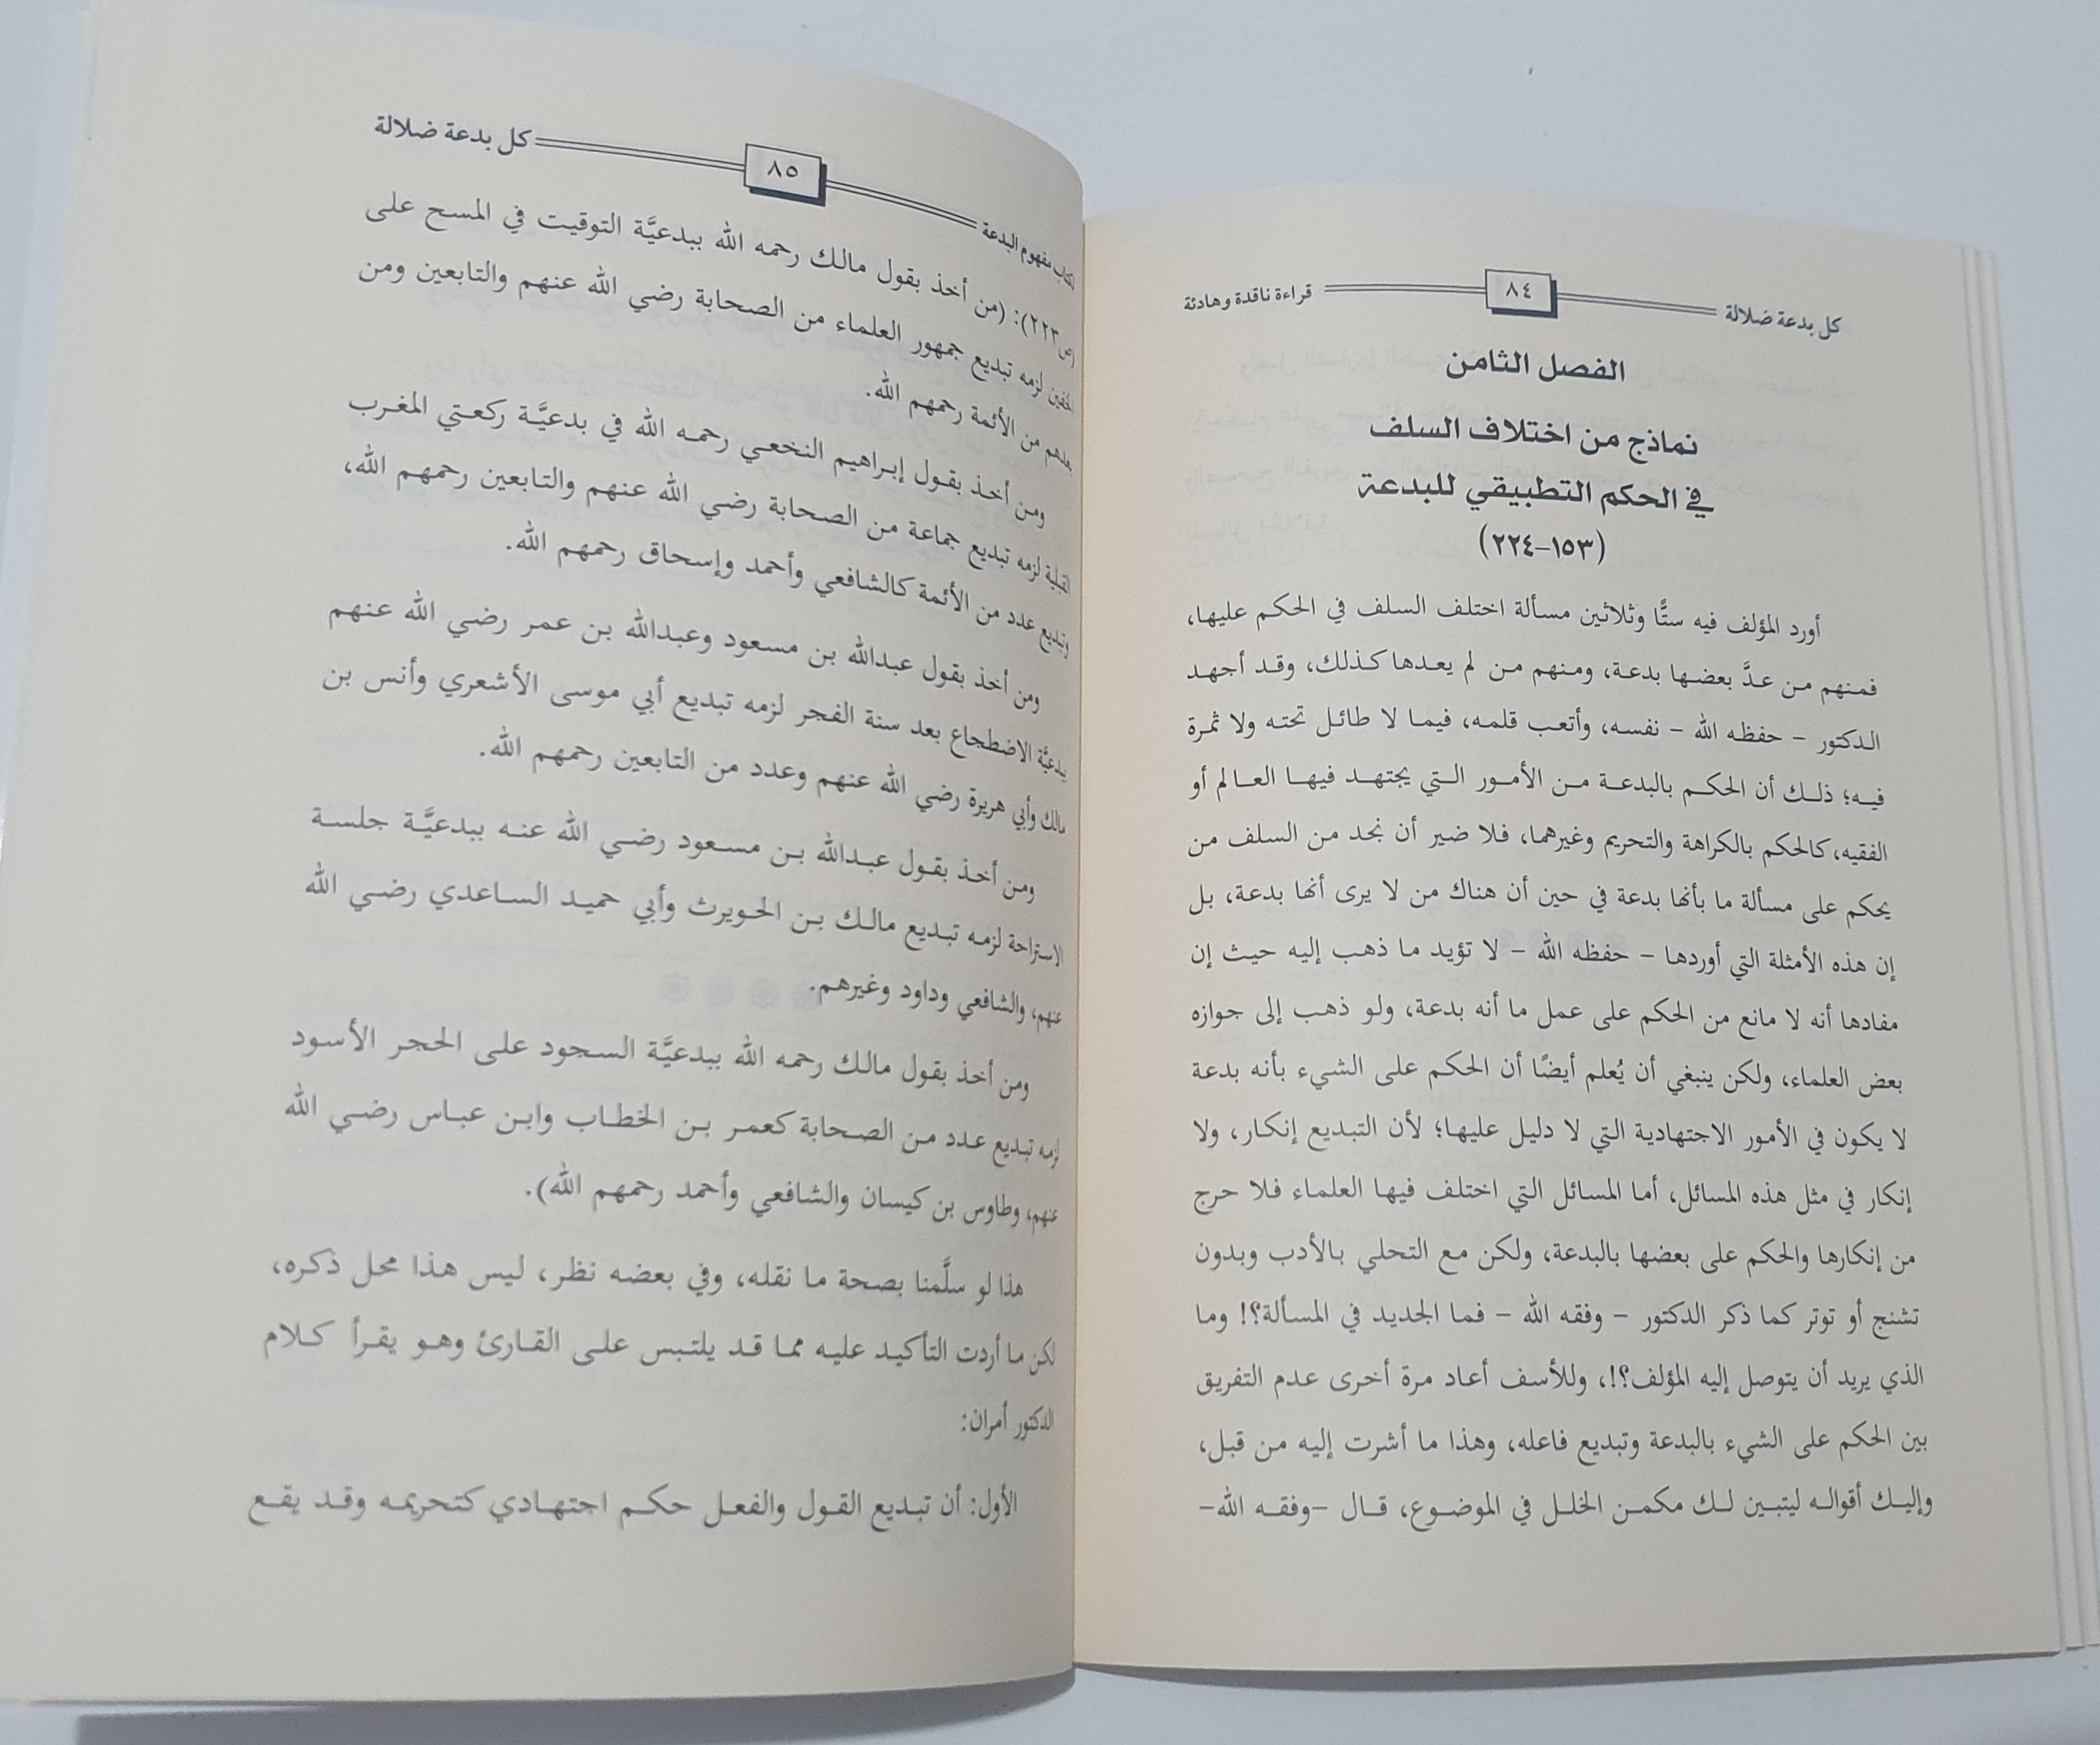 كل بدعة ضلالة ٨٤ قراءة ناقدة وهادئة
الفصل الثامن
نماذج من اختلاف السلف
في الحكم التطبيقي للبدعة
(١٥٣-٢٢٤)
أورد المؤلف فيه ستًّا وثلاثين مسألة اختلف السلف في الحكم عليها،
فمنهم من عدَّ بعضها بدعة، ومنهم من لم يعدها كذلك، وقد أجهد
الدكتور – حفظه الله – نفسه، وأتعب قلمه، فيما لا طائل تحته ولا ثمرة
فيه؛ ذلك أن الحكم بالبدعة من الأمور التي يجتهد فيها العالم أو
الفقيه، كالحكم بالكراهة والتحريم وغيرهما، فلا ضير أن نجد من السلف من
يحكم على مسألة ما بأنها بدعة في حين أن هناك من لا يرى أنها بدعة، بل
إن هذه الأمثلة التي أوردها – حفظه الله – لا تؤيد ما ذهب إليه حيث إن
مفادها أنه لا مانع من الحكم على عمل ما أنه بدعة، ولو ذهب إلى جوازه
بعض العلماء، ولكن ينبغي أن يُعلم أيضًا أن الحكم على الشيء بأنه بدعة
لا يكون في الأمور الاجتهادية التي لا دليل عليها؛ لأن التبديع إنكار، ولا
إنكار في مثل هذه المسائل، أما المسائل التي اختلف فيها العلماء فلا حرج
من إنكارها والحكم على بعضها بالبدعة، ولكن مع التحلي بالأدب وبدون
تشنج أو توتر كما ذكر الدكتور – وفقه الله – فما الجديد في المسألة؟! وما
الذي يريد أن يتوصل إليه المؤلف؟!، وللأسف أعاد مرة أخرى عدم التفريق
بين الحكم على الشيء بالبدعة وتبديع فاعله، وهذا ما أشرت إليه من قبل،
وإليك أقواله ليتبين لك مكمن الخلل في الموضوع، قال –وفقه الله–
لكتاب مفهوم البدعة ٨٥ كل بدعة ضلالة
(ص٢٢٣): (من أخذ بقول مالك رحمه الله ببدعيَّة التوقيت في المسح على
الخفين لزمه تبديع جمهور العلماء من الصحابة رضي الله عنهم والتابعين ومن
بعدهم من الأئمة رحمهم الله.
ومن أخذ بقول إبراهيم النخعي رحمه الله في بدعيَّة ركعتي المغرب
القبلية لزمه تبديع جماعة من الصحابة رضي الله عنهم والتابعين رحمهم الله،
وتبديع عدد من الأئمة كالشافعي وأحمد وإسحاق رحمهم الله.
ومن أخذ بقول عبدالله بن مسعود وعبدالله بن عمر رضي الله عنهم
ببدعيَّة الاضطجاع بعد سنة الفجر لزمه تبديع أبي موسى الأشعري وأنس بن
مالك وأبي هريرة رضي الله عنهم وعدد من التابعين رحمهم الله.
ومن أخذ بقول عبدالله بن مسعود رضي الله عنه ببدعيَّة جلسة
الاستراحة لزمه تبديع مالك بن الحويرث وأبي حميد الساعدي رضي الله
عنهم، والشافعي وداود وغيرهم.
ومن أخذ بقول مالك رحمه الله ببدعيَّة السجود على الحجر الأسود
لزمه تبديع عدد من الصحابة كعمر بن الخطاب وابن عباس رضي الله
عنهم، وطاوس بن كيسان والشافعي وأحمد رحمهم الله).
هذا لو سلَّمنا بصحة ما نقله، وفي بعضه نظر، ليس هذا محل ذكره،
لكن ما أردت التأكيد عليه مما قد يلتبس على القارئ وهو يقرأ كلام
الدكتور أمران:
الأول: أن تبديع القول والفعل حكم اجتهادي كتحريمه وقد يقع